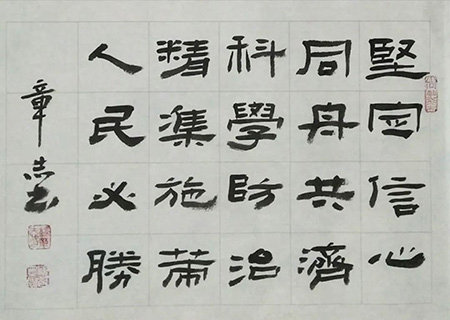 堅定信心
同舟共濟
科學防治
精準施策
人民必勝
章志书